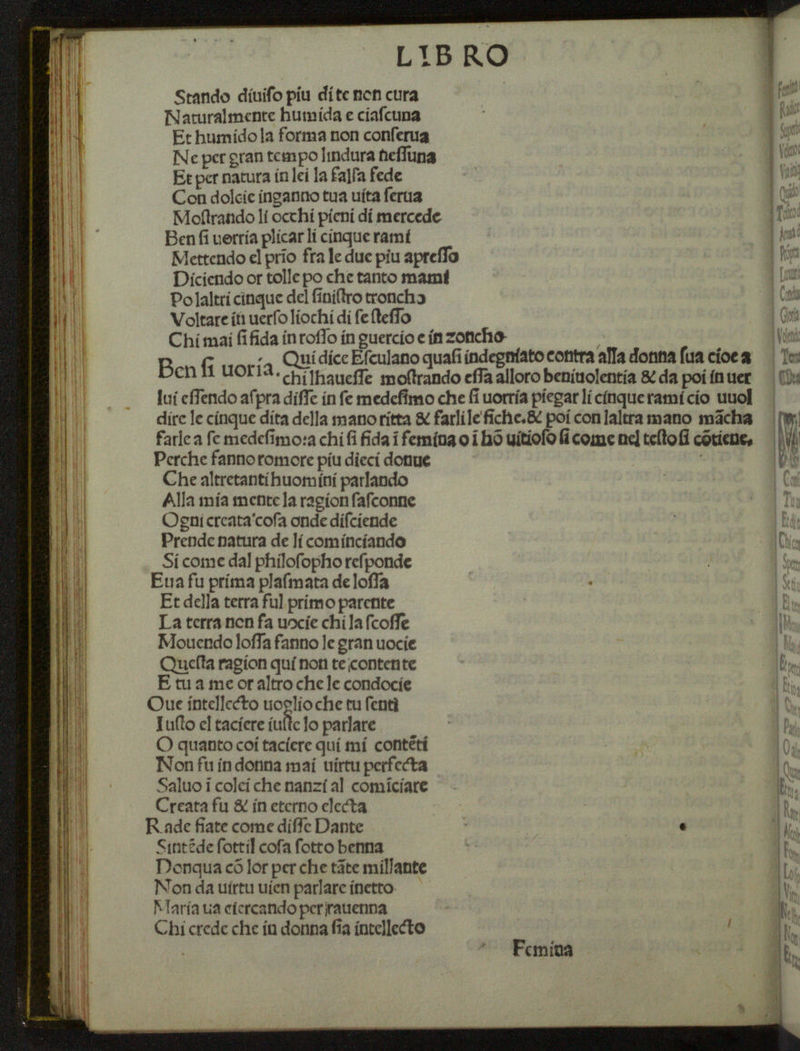 LIBRO
Stando diuiſo piu di te non cura
Naturalmente humida e ciaſcuna
Et humido la forma non conſerua
Ne per gran tempo lindura neſſuna
Et per natura in lei la falſa fede
Con dolcie inganno tua uita ſerua
Moſtrando li occhi pieni di mercede
Ben ſi uorria plicar li cinque rami
Mettendo el prio fra le due piu apreſſo
Diciendo or tolle po che tanto mami
Po laltri cinque del ſiniſtro troncho
Voltare in uerſo liochi di ſe ſteſſo
Chi mai ſi fida in roſſo in guercio e in zoncho
Ben ſi uoria. Qui dice Eſculano quaſi indegniato contra alla donna ſua cioe a
chi lhaueſſe moſtrando eſſa alloro beniuolentia & da poi in uer
lui eſſendo aſpra diſſe in ſe medeſimo che ſi uorria piegar li cinque rami cio uuol
dire le cinque dita della mano ritta & farli le fiche.& poi con laltra mano mācha
farle a ſe medeſimo:a chi ſi fida ī femina o ī hō uitioſo ſi come nel teſto ſi cōtiene.
Perche fanno romore piu dieci donne
Che altretanti huomini parlando
Alla mia mente la ragion ſaſconne
Ogni creata coſa onde diſciende
Prende natura de li cominciando
Si come dal philoſopho reſponde
Eua fu prima plaſmata de loſſa
Et della terra ful primo parente
La terra non fa uocie chi la ſcoſſe
Mouendo loſſa fanno le gran uocie
Queſta ragion qui non te contente
E tu a me or altro che le condocie
Que intellecto uoglio che tu ſenti
Iuſto el taciere iuſte lo parlare
O quanto coi taciere qui mi contēti
Non fu in donna mai uirtu perfecta
Saluo ī colei che nanzi al comīciare
Creata fu & in eterno electa
Rade fiate come diſſe Dante
Sintēde ſottil coſa ſotto benna
Donqua cō lor per che tāte millante
Non da uirtu uien parlare inetto
Maria ua ciercando per rauenna
Chi crede che in donna ſia intellecto
Femina